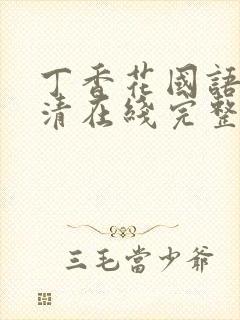 丁香花國語
清在綫完整
三毛當少爺